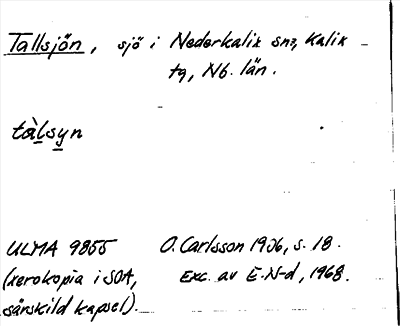 Tallsjön, sjö i Nederkalix sn, Kalix
tg, Nb. län.
tàlsyn
ULMA 9855 O. Carlsson 1906, s. 18.
(xerokopia i SOA, Exc. av E. N-d, 1968.
särskild kapsel).